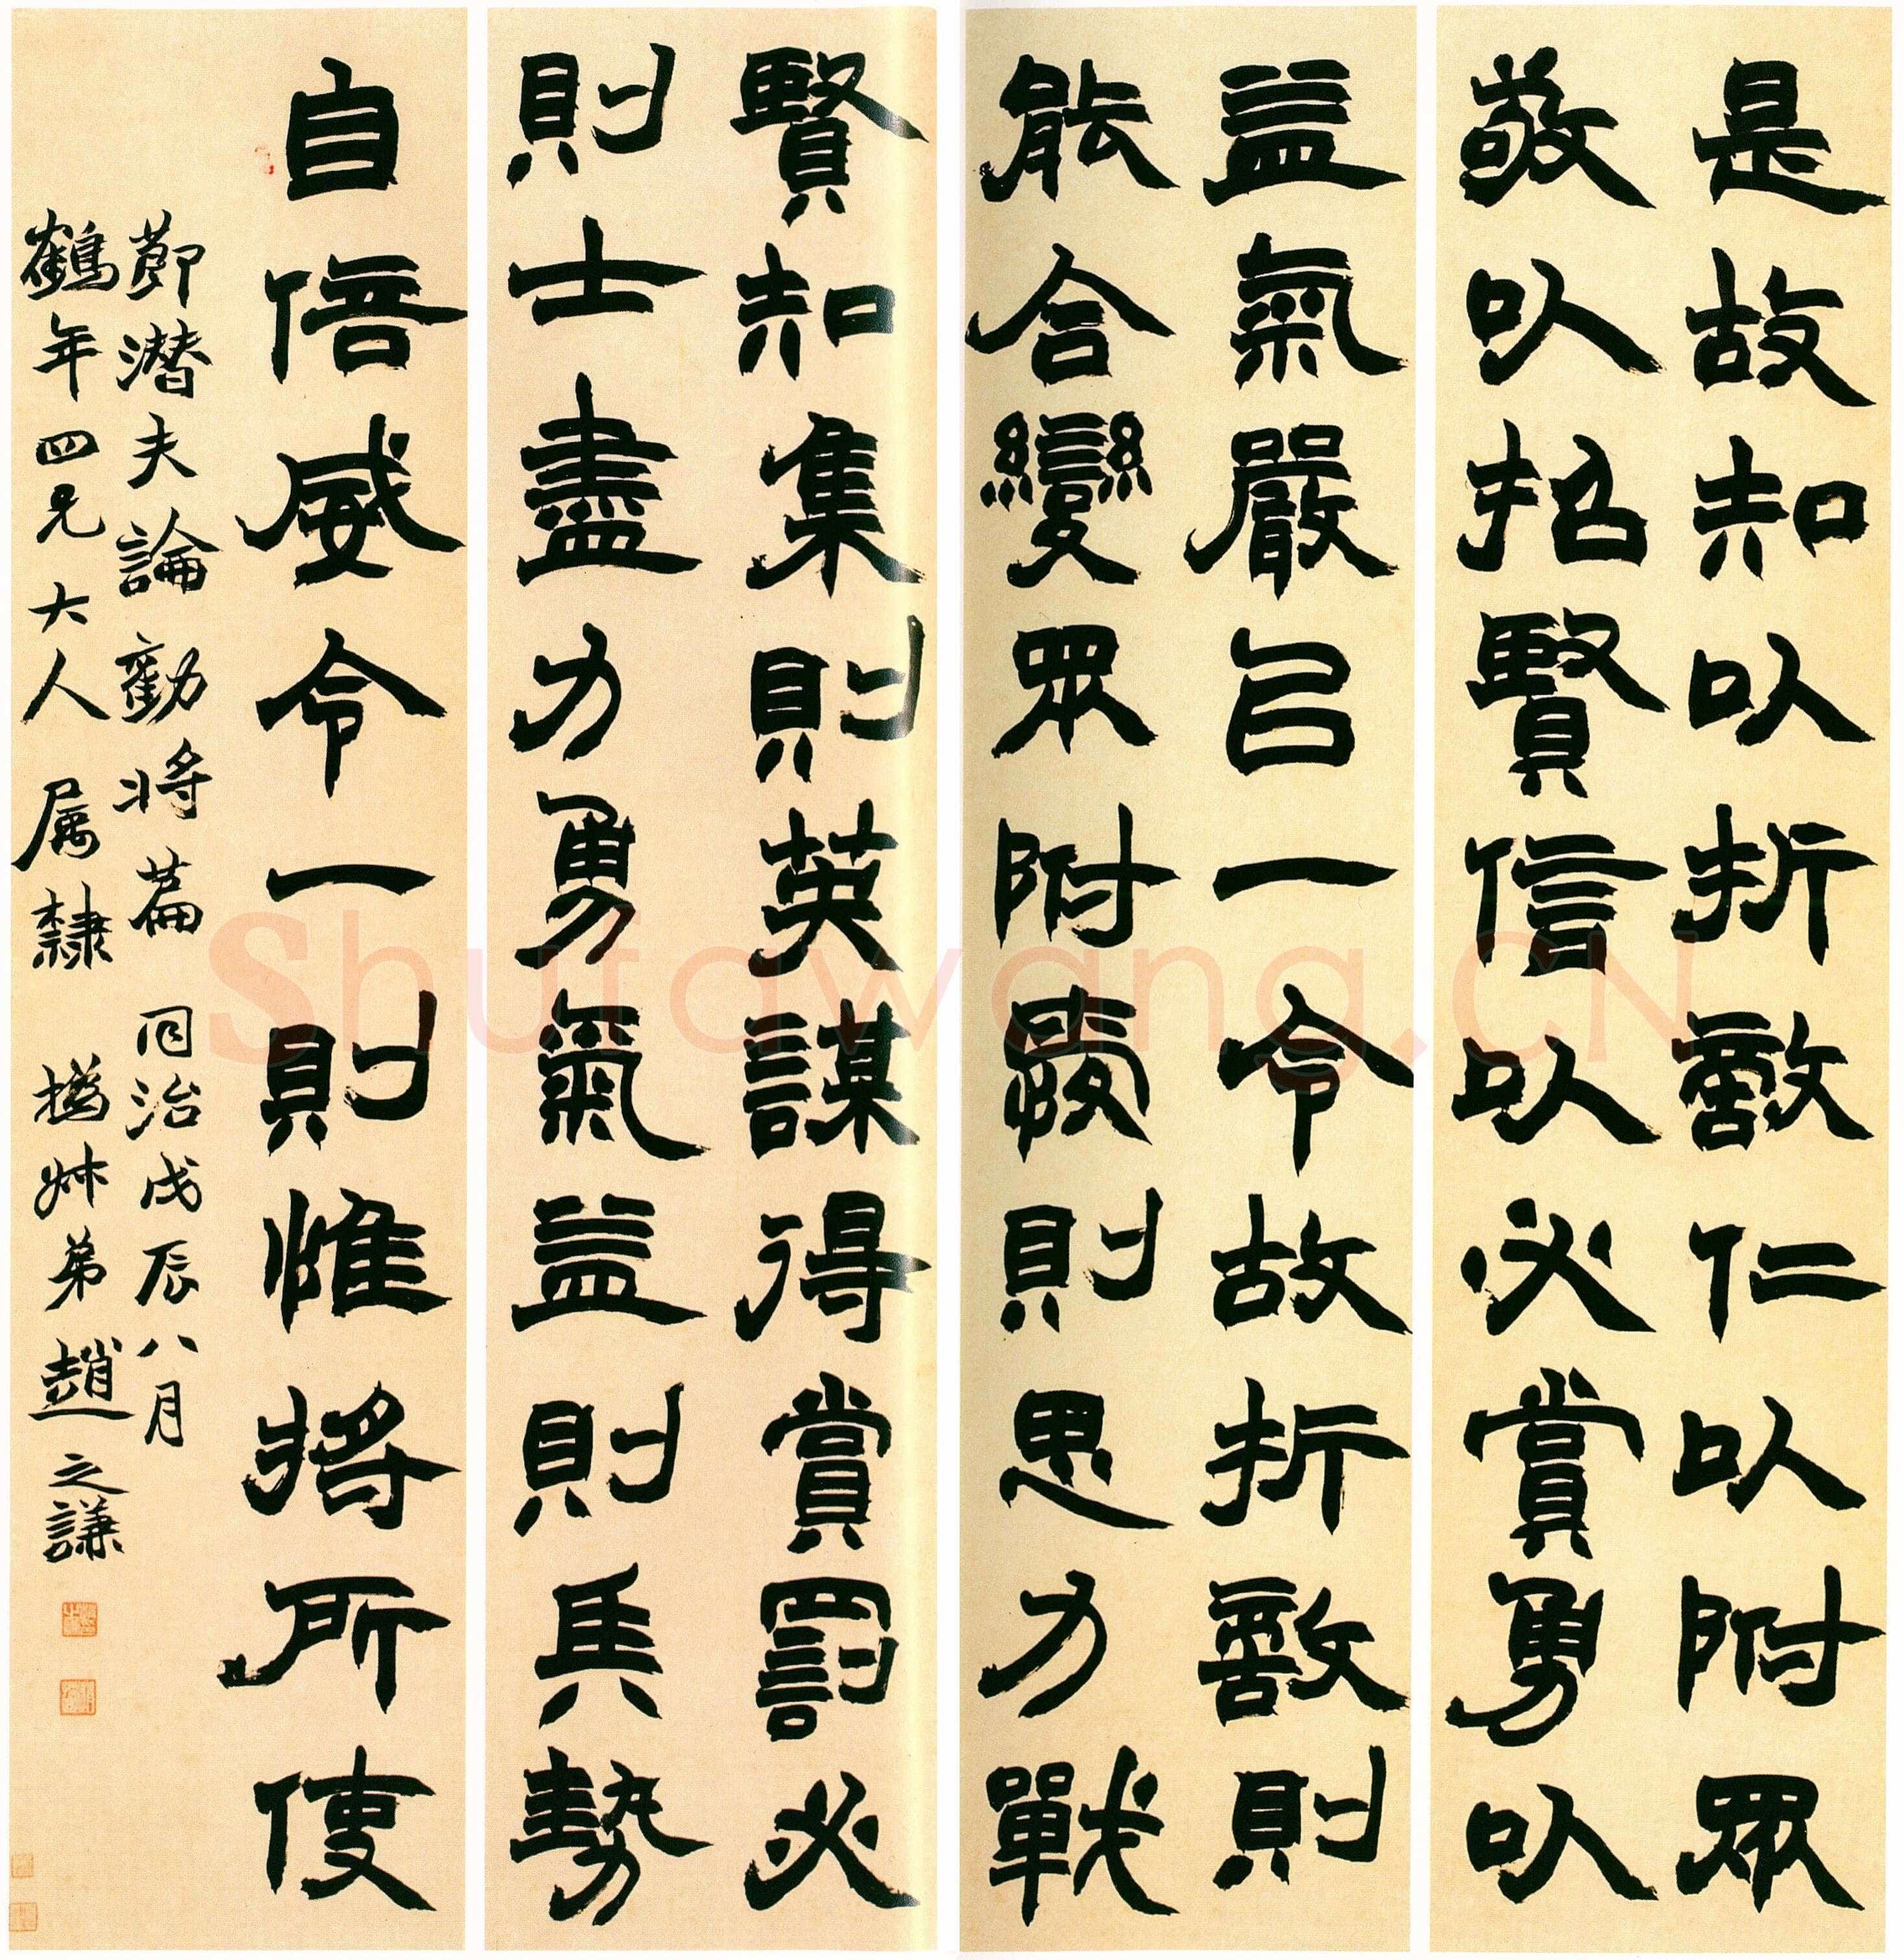 是故知以折敵仁以附眾
敬以招賢信以必賞勇以
益氣嚴㠯一令故折敵則
能合變眾附愛則思力戰
賢知集則英謀得賞罰必
則士盡力勇氣益則兵勢
自倍威令一則惟將所使
節潛夫論勸將篇 同治戊辰八月
鶴年四兄大人 属隸 撝叔弟趙之謙
Shufawang.CN